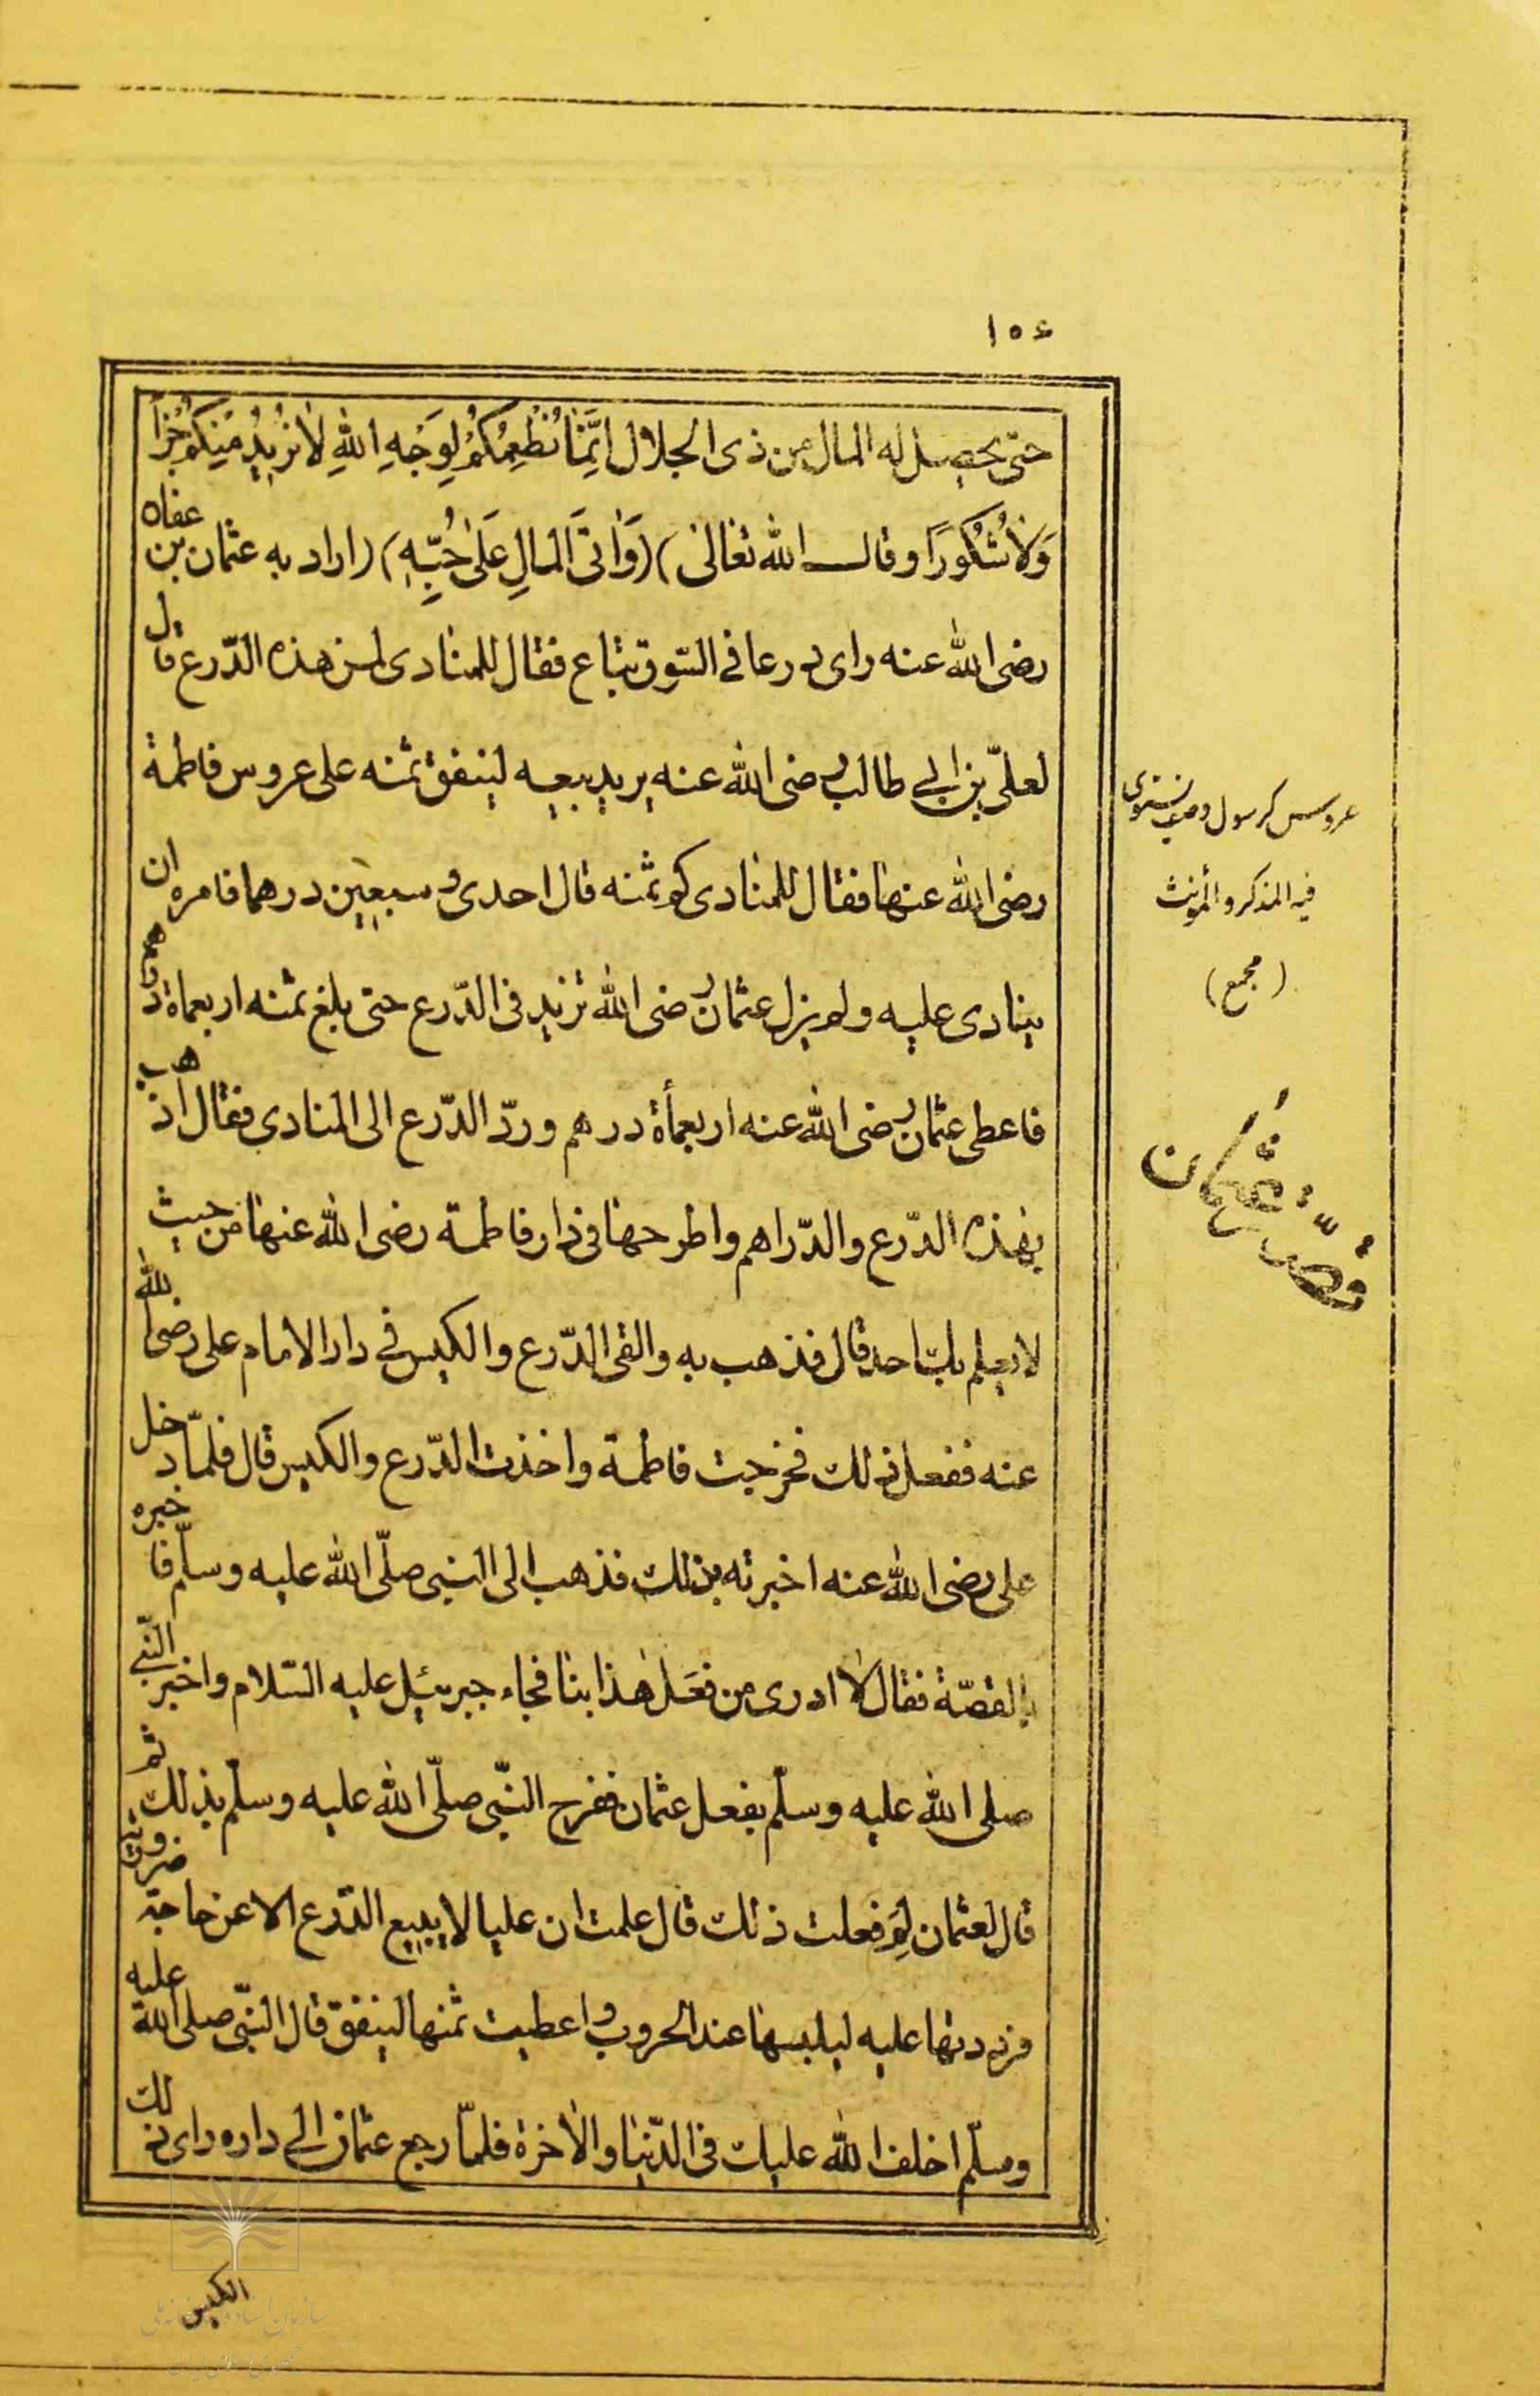 ۱۵۶
حتی یحصل له المال من ذی الجلال اِنَّمٰا نُطْعِمُكُمْ لِوَجْهِ اللّٰهِ لٰا نُرٖیدُ مِنْكُمْ جَزٰآءً
وَلٰا شُكُورًا وقال الله تعٰالیٰ) (وَاٰتَی الْمٰالَ عَلیٰ حُبِّهِ) (اراد به عثمان بن عفان
رضی الله عنه رای درعا فی السّوق تباع فقال للمنادی لمن هذه الدّرع قال
لعلیّ بن ابی طالب رضی الله عنه یرید بیعه لینفق ثمنه علی عروس فاطمة
رضی الله عنهٰا فقال للمنادی كم ثمنه قال احدی وسبعین درهما فامره ان
ینادی علیه ولم یزل عثمان رضی الله تزید فی الدّرع حتی بلغ ثمنه اربعماة درهم
فاعطی عثمان رضی الله عنه اربعمأة درهم وردّ الدّرع الی المنادی فقال اذهب
بهٰذه الدّرع والدّراهم واطرحهٰا فی دٰار فاطمة رضی الله عنهٰا من حیث
لا یعلم بك احد قال فذهب به والقی الدّرع والكیس فی دار الامام علی رضی الله
عنه ففعل ذلك فخرجت فاطمة واخذت الدّرع والكیس قال فلمّا دخل
علی رضی الله عنه اخبرته بذلك فذهب الی النبی صلّی الله علیه وسلّم فاخبره
بالقصّة فقال لٰا ادری من فعَل هٰذا بنٰا فجٰاء جبرئیل علیه السّلام واخبر النّبی
صلی الله علیه وسلّم بفعل عثمان ففرح النّبی صلّی الله علیه وسلّم بذلك ثم
قال لعثمان لِمَ فعلت ذلك قال علمت ان علیا لا یبیع الدّرع الا عن حاجة وضرورة
فرددتها علیه لیلبسهٰا عند الحروب واعطیت ثمنها لینفق قال النّبی صلی الله علیه
وسلّم اخلف الله علیك فی الدّنیٰا والاٰخرة فلمّا رجع عثمان الی داره رای ذلك
الكیس
عروس كرسول وصف یستوی
فیه المذكر والمؤنث
(مجمع)
قصّة عثمان